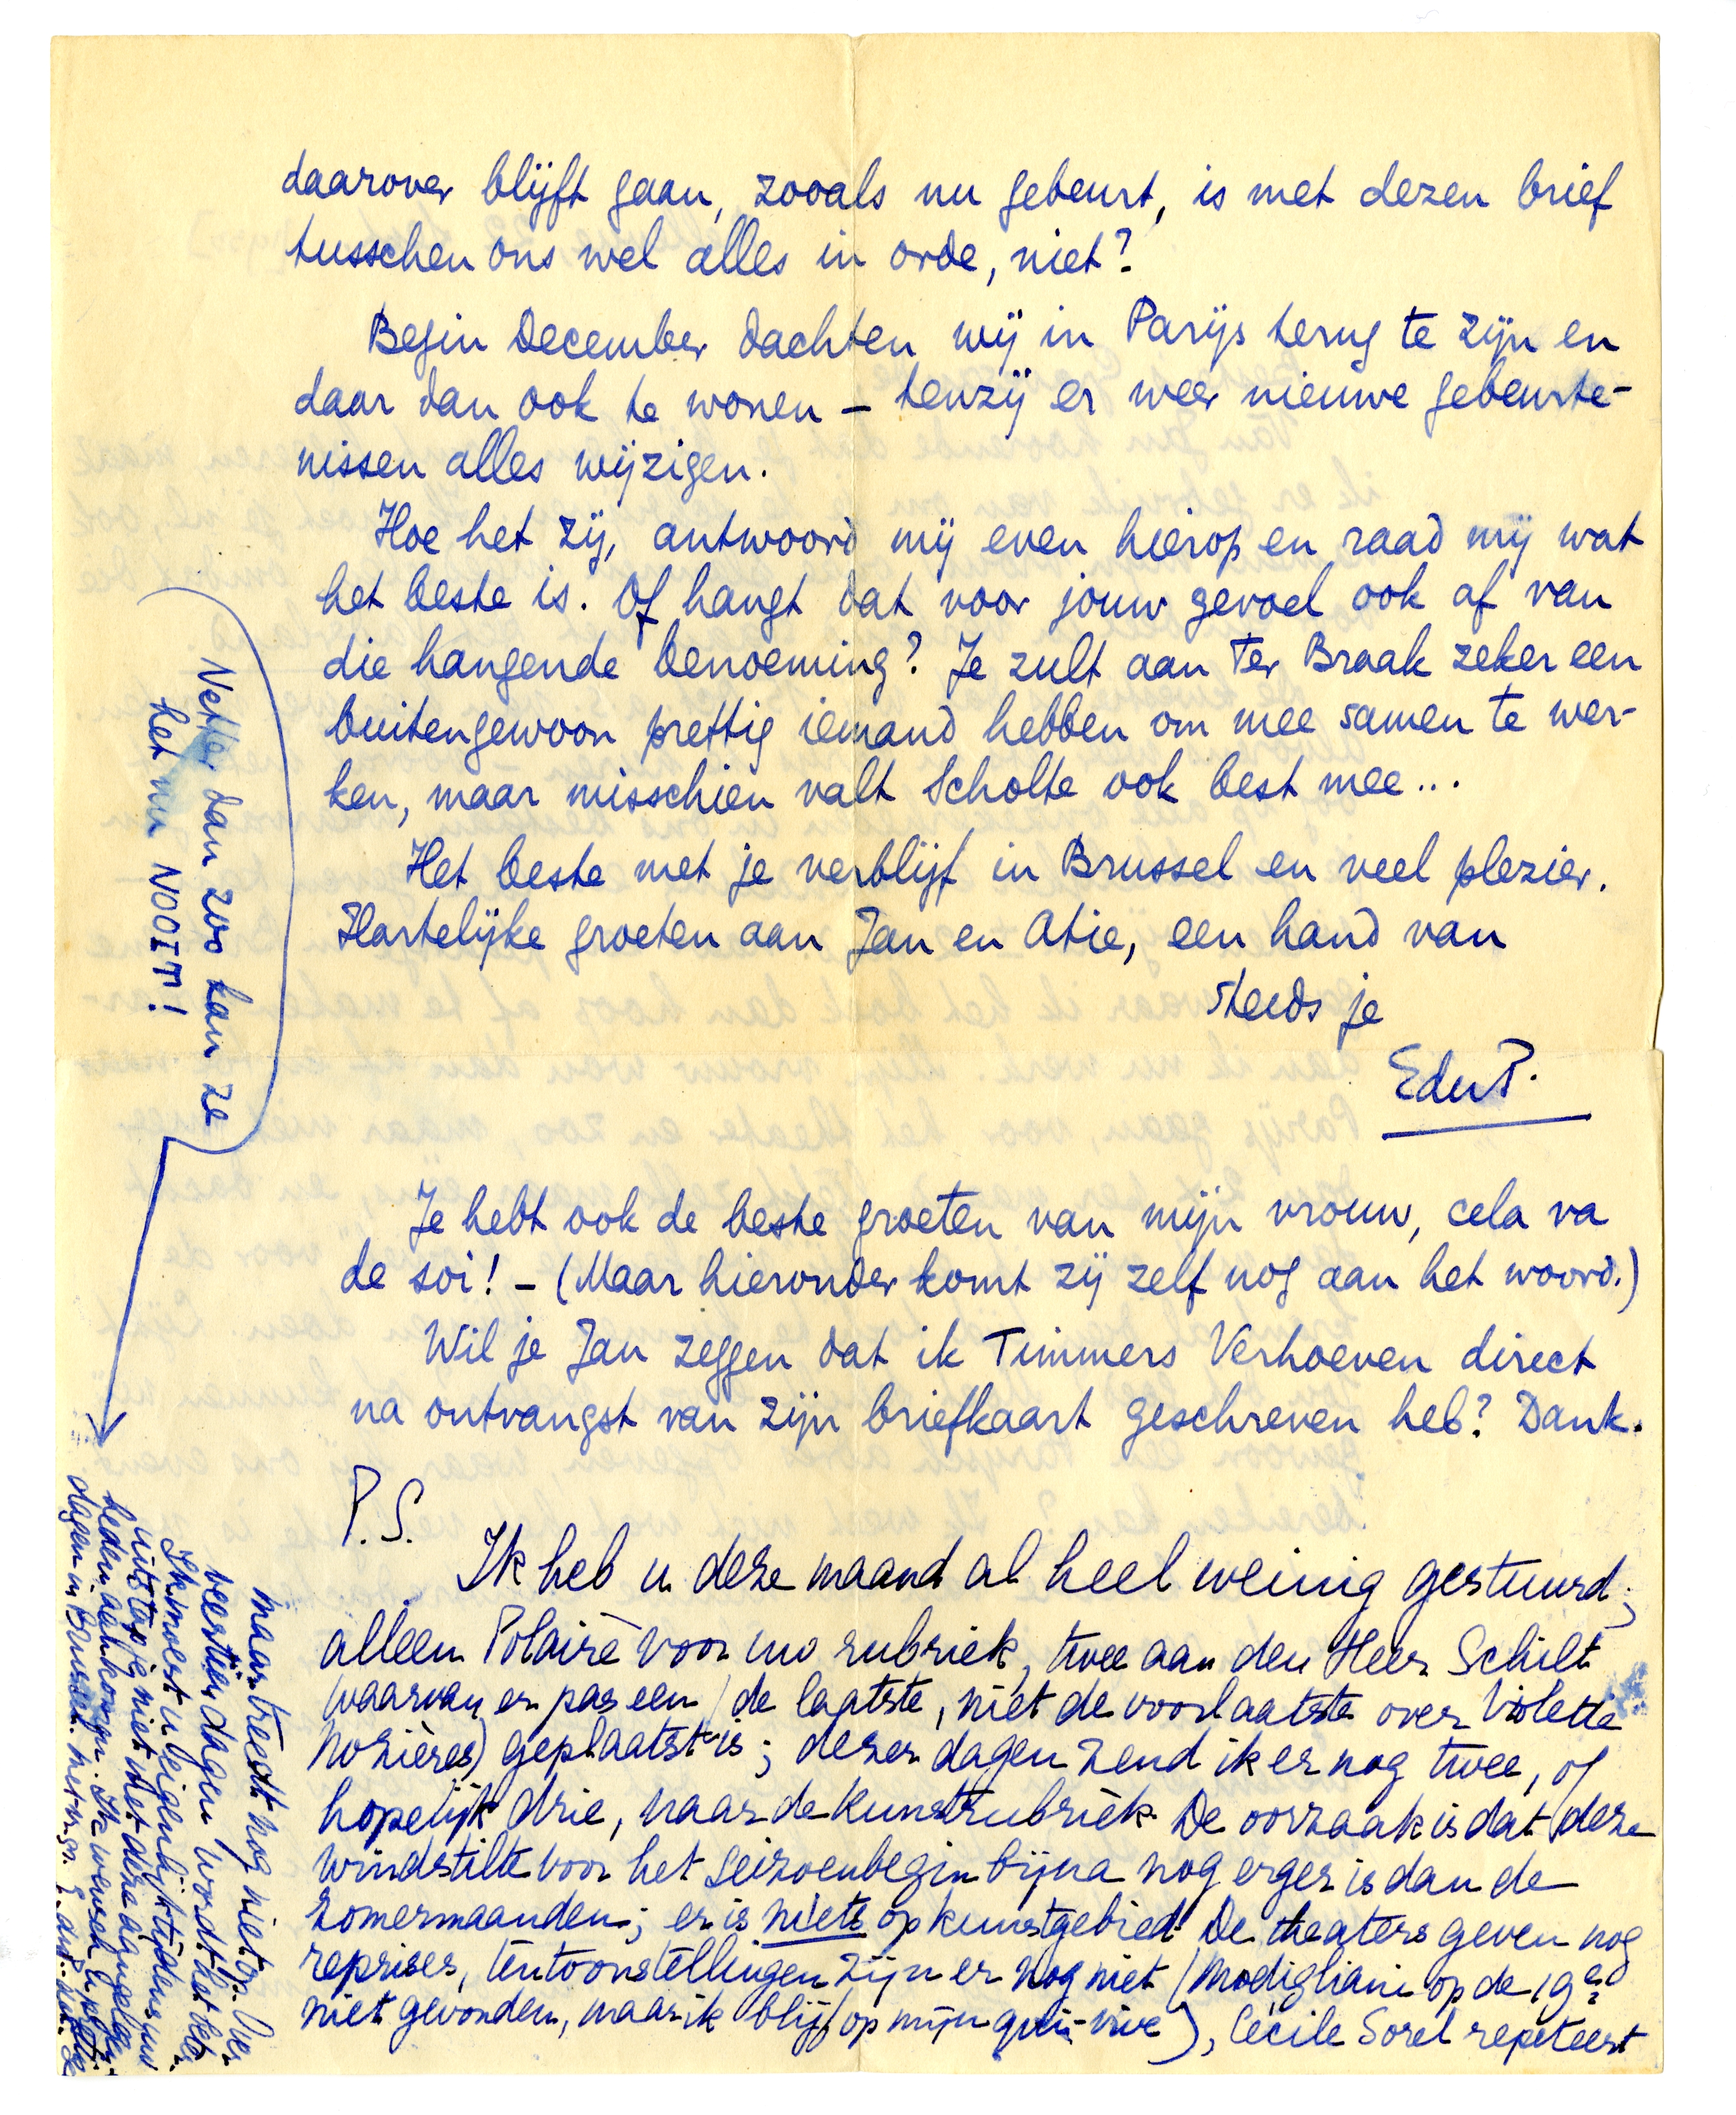 daarover blijft gaan, zooals nu gebeurt, is met dezen brief
tusschen ons wel alles in orde, niet?
Begin December dachten wij in Parijs terug te zijn en
daar dan ook te wonen – tenzij er weer nieuwe gebeurte-
nissen alles wijzigen.
Hoe het zij, antwoord mij even hierop en raad mij wat
het beste is. Of hangt dat voor jouw gevoel ook af van
die hangende benoeming? Je zult aan Ter Braak zeker een
buitengewoon prettig iemand hebben om mee samen te wer-
ken, maar misschien valt Scholte ook best mee...
Het beste met je verblijf in Brussel en veel plezier.
Hartelijke groeten aan Jan en Atie, een hand van
steeds je
EduP.
Je hebt ook de beste groeten van mijn vrouw, cela va
de soi! – (Maar hieronder komt zij zelf nog aan het woord.)
Wil je Jan zeggen dat ik Timmers Verhoeven direct
na ontvangst van zijn briefkaart geschreven heb? Dank.
P.S.
Ik heb u deze maand al heel weinig gestuurd;
alleen Polaire voor uw rubriek, twee aan den Heer Schilt
(waarvan er pas een (de laatste, niet de voorlaatste over Violette
Nozières) geplaatst is; dezer dagen zend ik er nog twee, of
hopelijk drie, naar de kunstrubriek. De oorzaak is dat deze
windstilte voor het seizoenbegin bijna nog erger is dan de
zomermaanden; er is niets op kunstgebied. De theaters geven nog
reprises, tentoonstellingen zijn er nog niet (Modigliani op de 19e?
niet gevonden, maar ik blijf op mijn qui-vive), Cécile Sorel repeteert
maar treedt nog niet op. Over
veertien dagen wordt het beter.
Ik moest u eigenlijk tijdens uw
uitstapje niet met deze aangelegen-
heden aankomen. Ik wensch u prettige
dagen in Brussel. Met vr. gr. E. du P.
Netter dan zoo kan ze
het nu NOOIT!